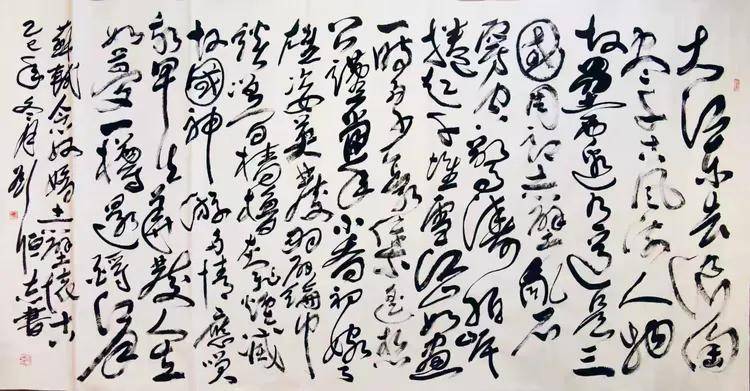 大江東去浪淘
盡千古風流人物
故壘西邊人道是三
國周郎赤壁亂石
穿空驚濤拍岸
捲起千堆雪江山如畫
一時多少豪傑遥想
公瑾當年小喬初嫁了
雄姿英發羽扇綸巾
談笑間檣櫓灰飛煙滅
故國神游多情應笑
我早生華髮人生
如夢一樽還酹江月
蘇軾念奴嬌赤壁懷古
乙巳年冬月劉恒志書